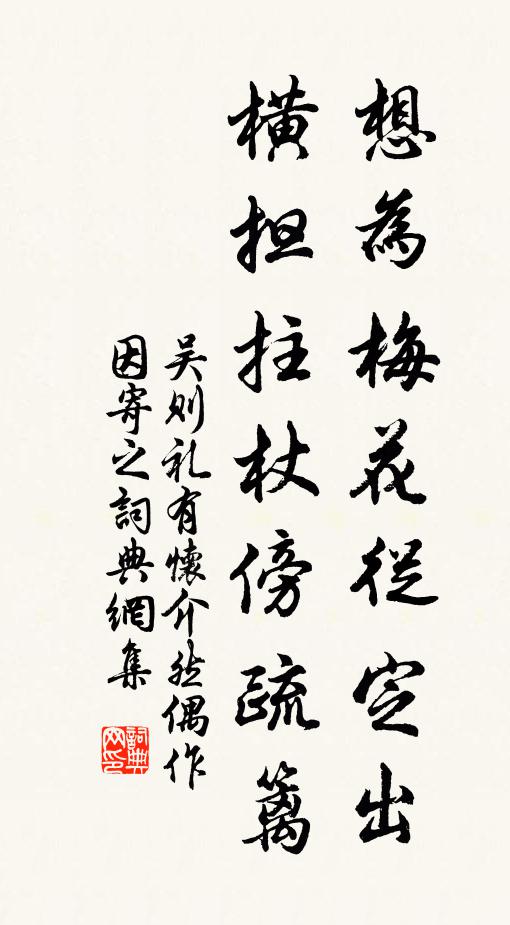 想為梅花從定出
橫担拄杖傍疏籬
吴则礼有懷介然偶作
因寄之詞典網集
詞典网印